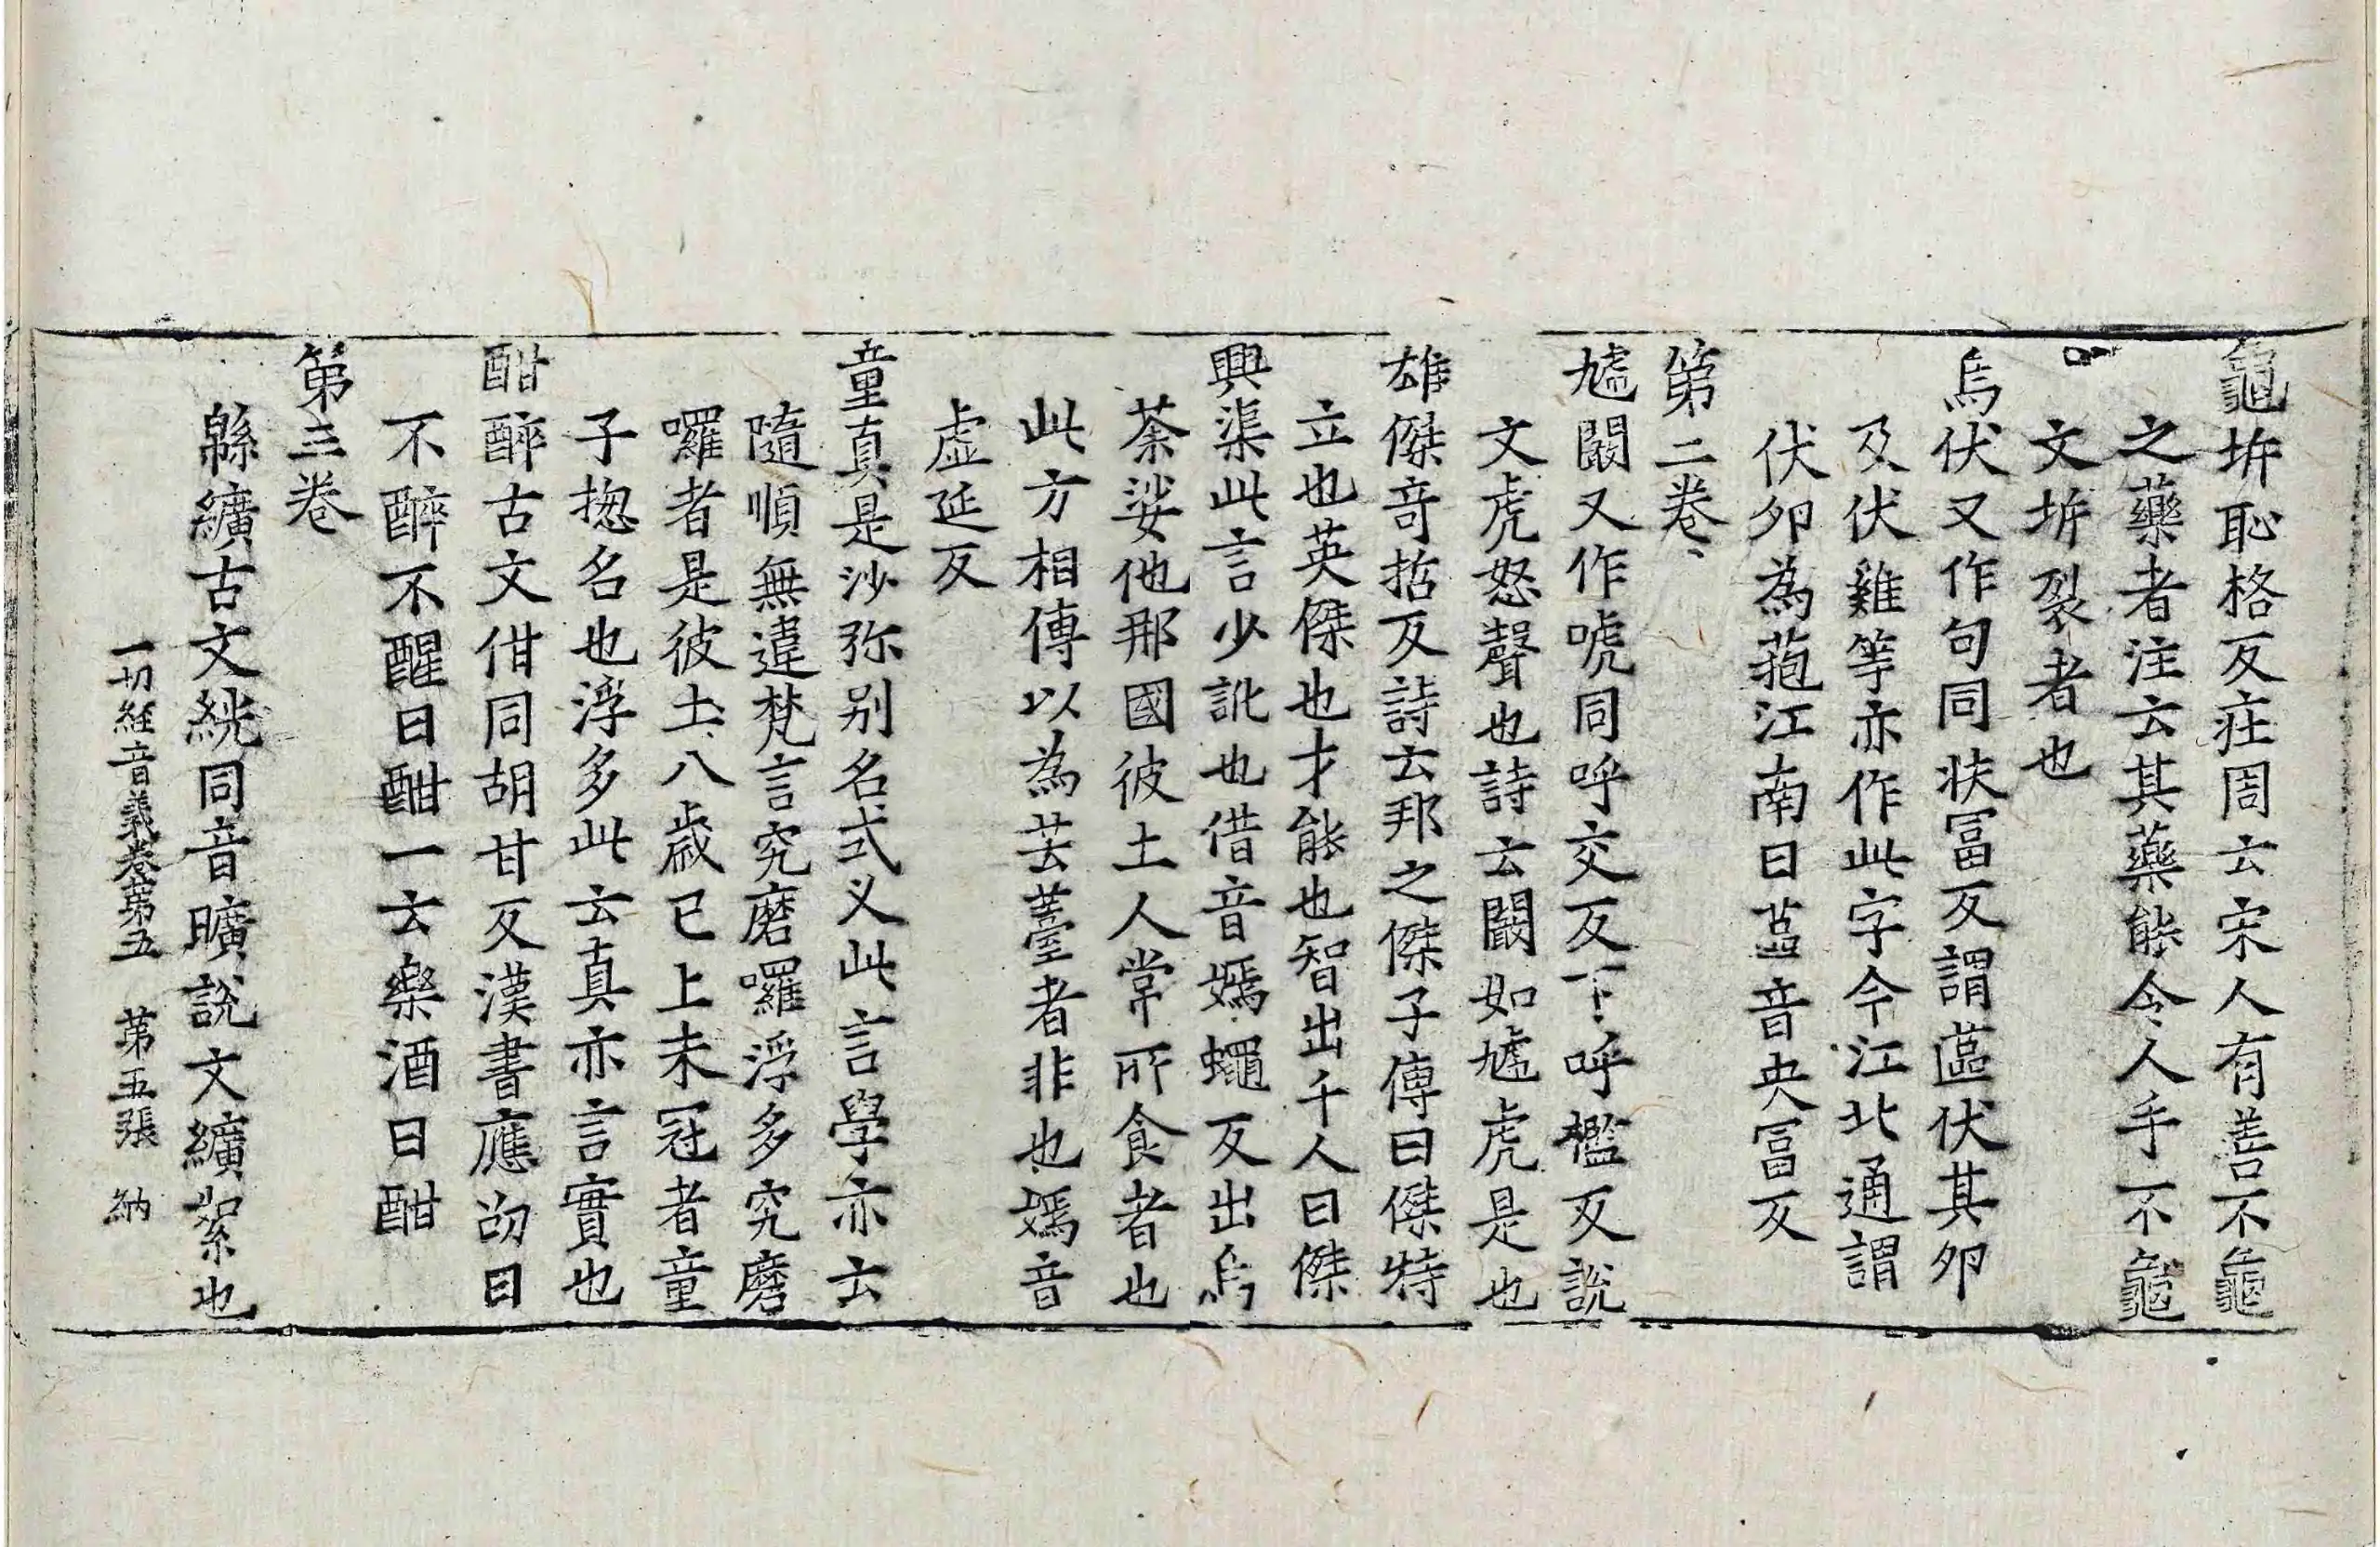 龜坼恥格反莊周云宋人有善不龜
之藥者注云其藥能令人手不龜
文坼裂者也
烏伏又作勽同扶冨反謂蓲伏其卵
及伏雞等亦作此字今江北通謂
伏卵為菢江南曰蓲音央冨反
第二卷
虓闞又作唬同呼交反下呼檻反說
文虎怒聲也詩云闞如虓虎是也
雄傑竒哲反詩云邦之傑子傳曰傑特
立也英傑也才能也智出千人曰傑
興渠此言少訛也借音嫣蠅反出烏
荼娑他那國彼土人常所食者也
此方相傳以為芸薹者非也嫣音
虛延反
童真是沙弥别名式义此言學亦云
隨順無違梵言究磨囉浮多究磨
囉者是彼土八歲已上未冠者童
子揔名也浮多此云真亦言實也
酣醉古文佄同胡甘反漢書應劭曰
不醉不醒曰酣一云樂酒曰酣
第三卷
緜纊古文絖同音曠說文纊絮也
一切經音義卷第五　第五張　納